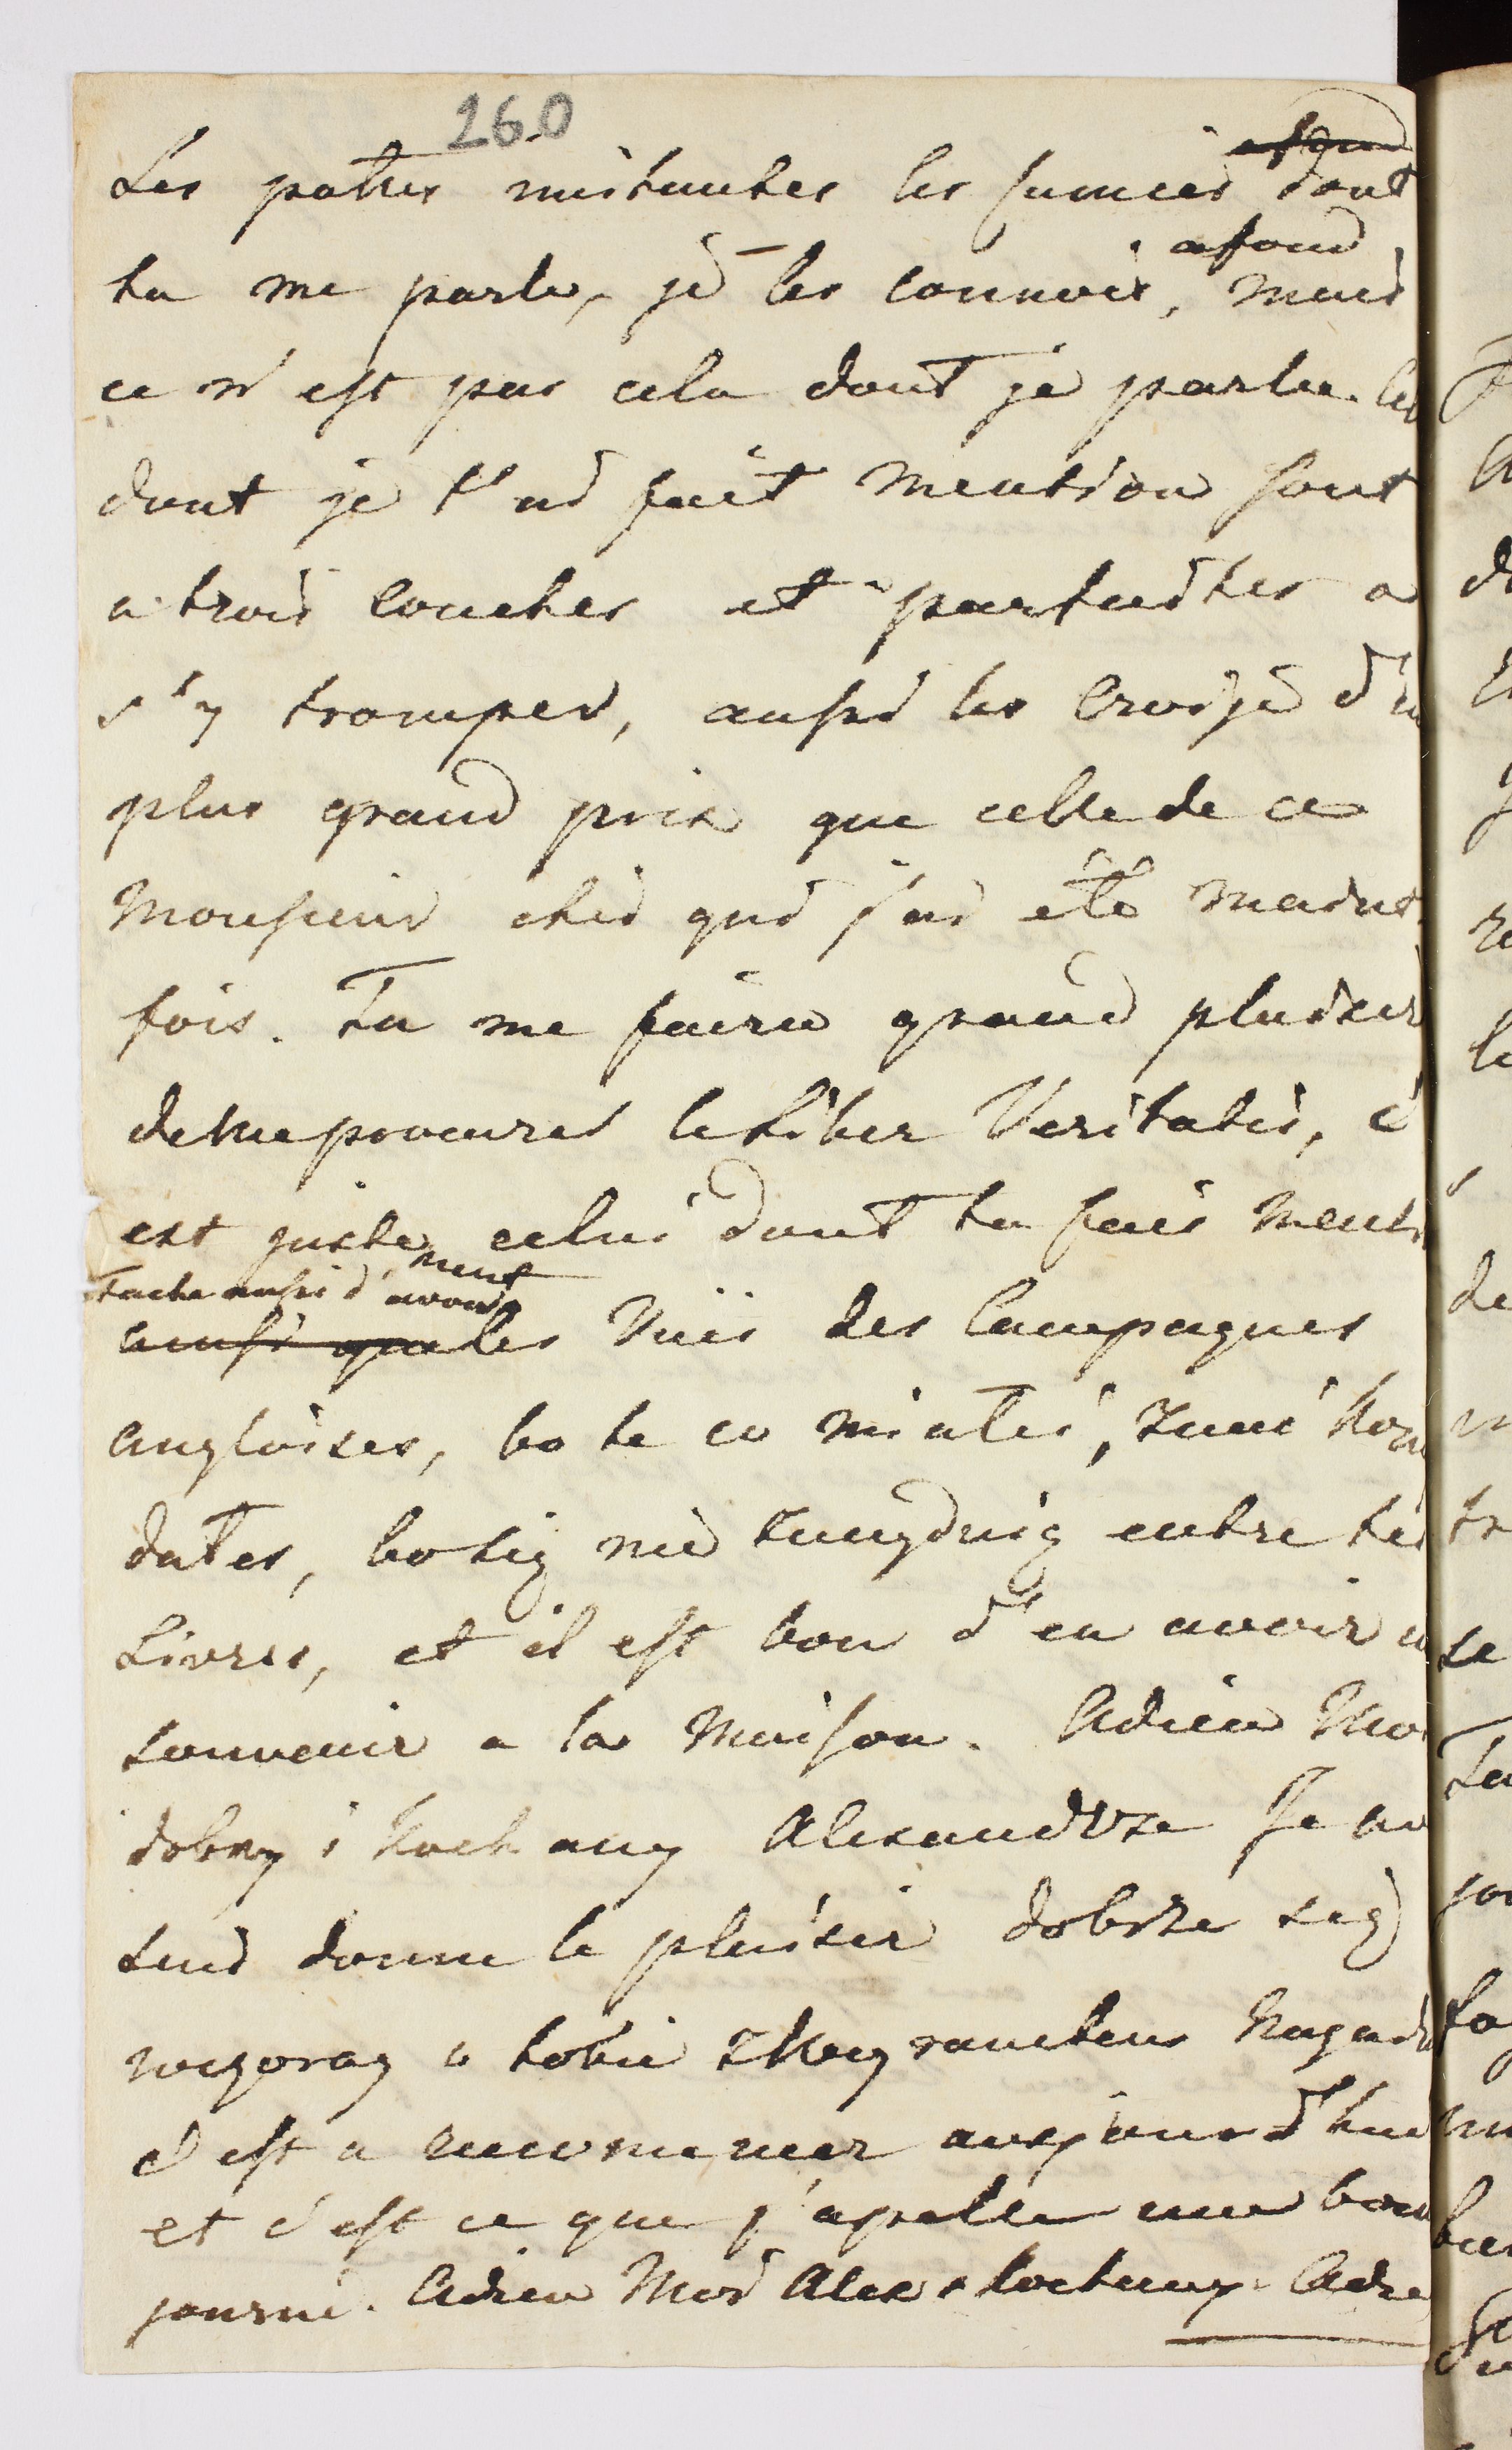 260
Les patres mitantes les fumeès dont
afond
tu me parle, je les connois, mais
ce n'est pas cela dont je parle. les
dont je t'ai fait mention sont
a trois couches et parfaites a
s'y tromper, aussi les croije d'un
plus grand prix que celle de ce
Monsieur chès qui j'ai été mainte
fois. Tu me faira grand plaisir
de me procurer le Liber Veritatis, c'
est juste celui dont tu fais menti
ment
Tache aussi d'avoir
aussi que les Vuës des Campagnes
angloises, bo te co miales, Kom
dates, bo się nie znaydują entre tes
Livres, et il est bon d'en avoir un
souvenir a la Maison. Adieu Mo
dobry i kochany Alexandrze
donne le plaisir dobrze się
wczoray u tobie
c'est a recommencer aujourd'hui
et c'est ce que j'apelle une bone
journé. Adieu Mòd Alex kochany. Adie